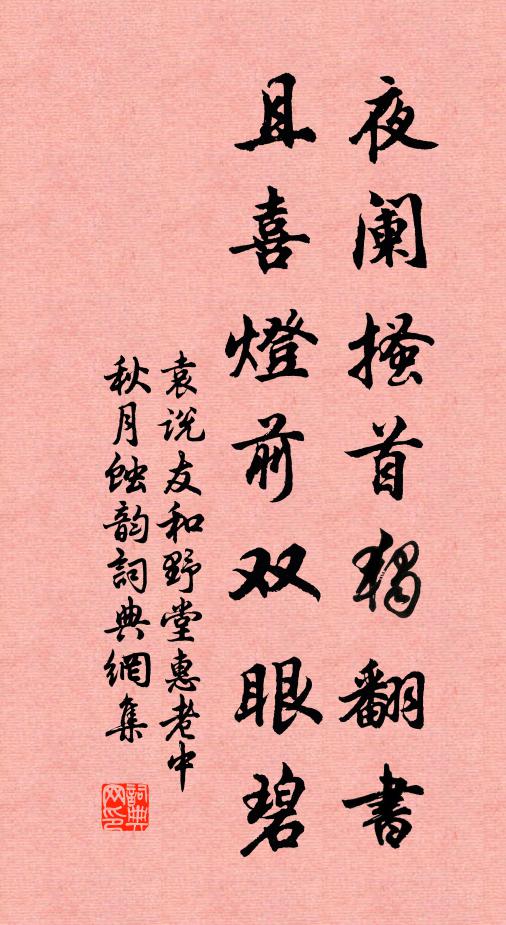 夜阑搔首独翻書
且喜燈前双眼碧
袁说友和野堂惠老中
秋月蚀韵詞典網集
詞典网印